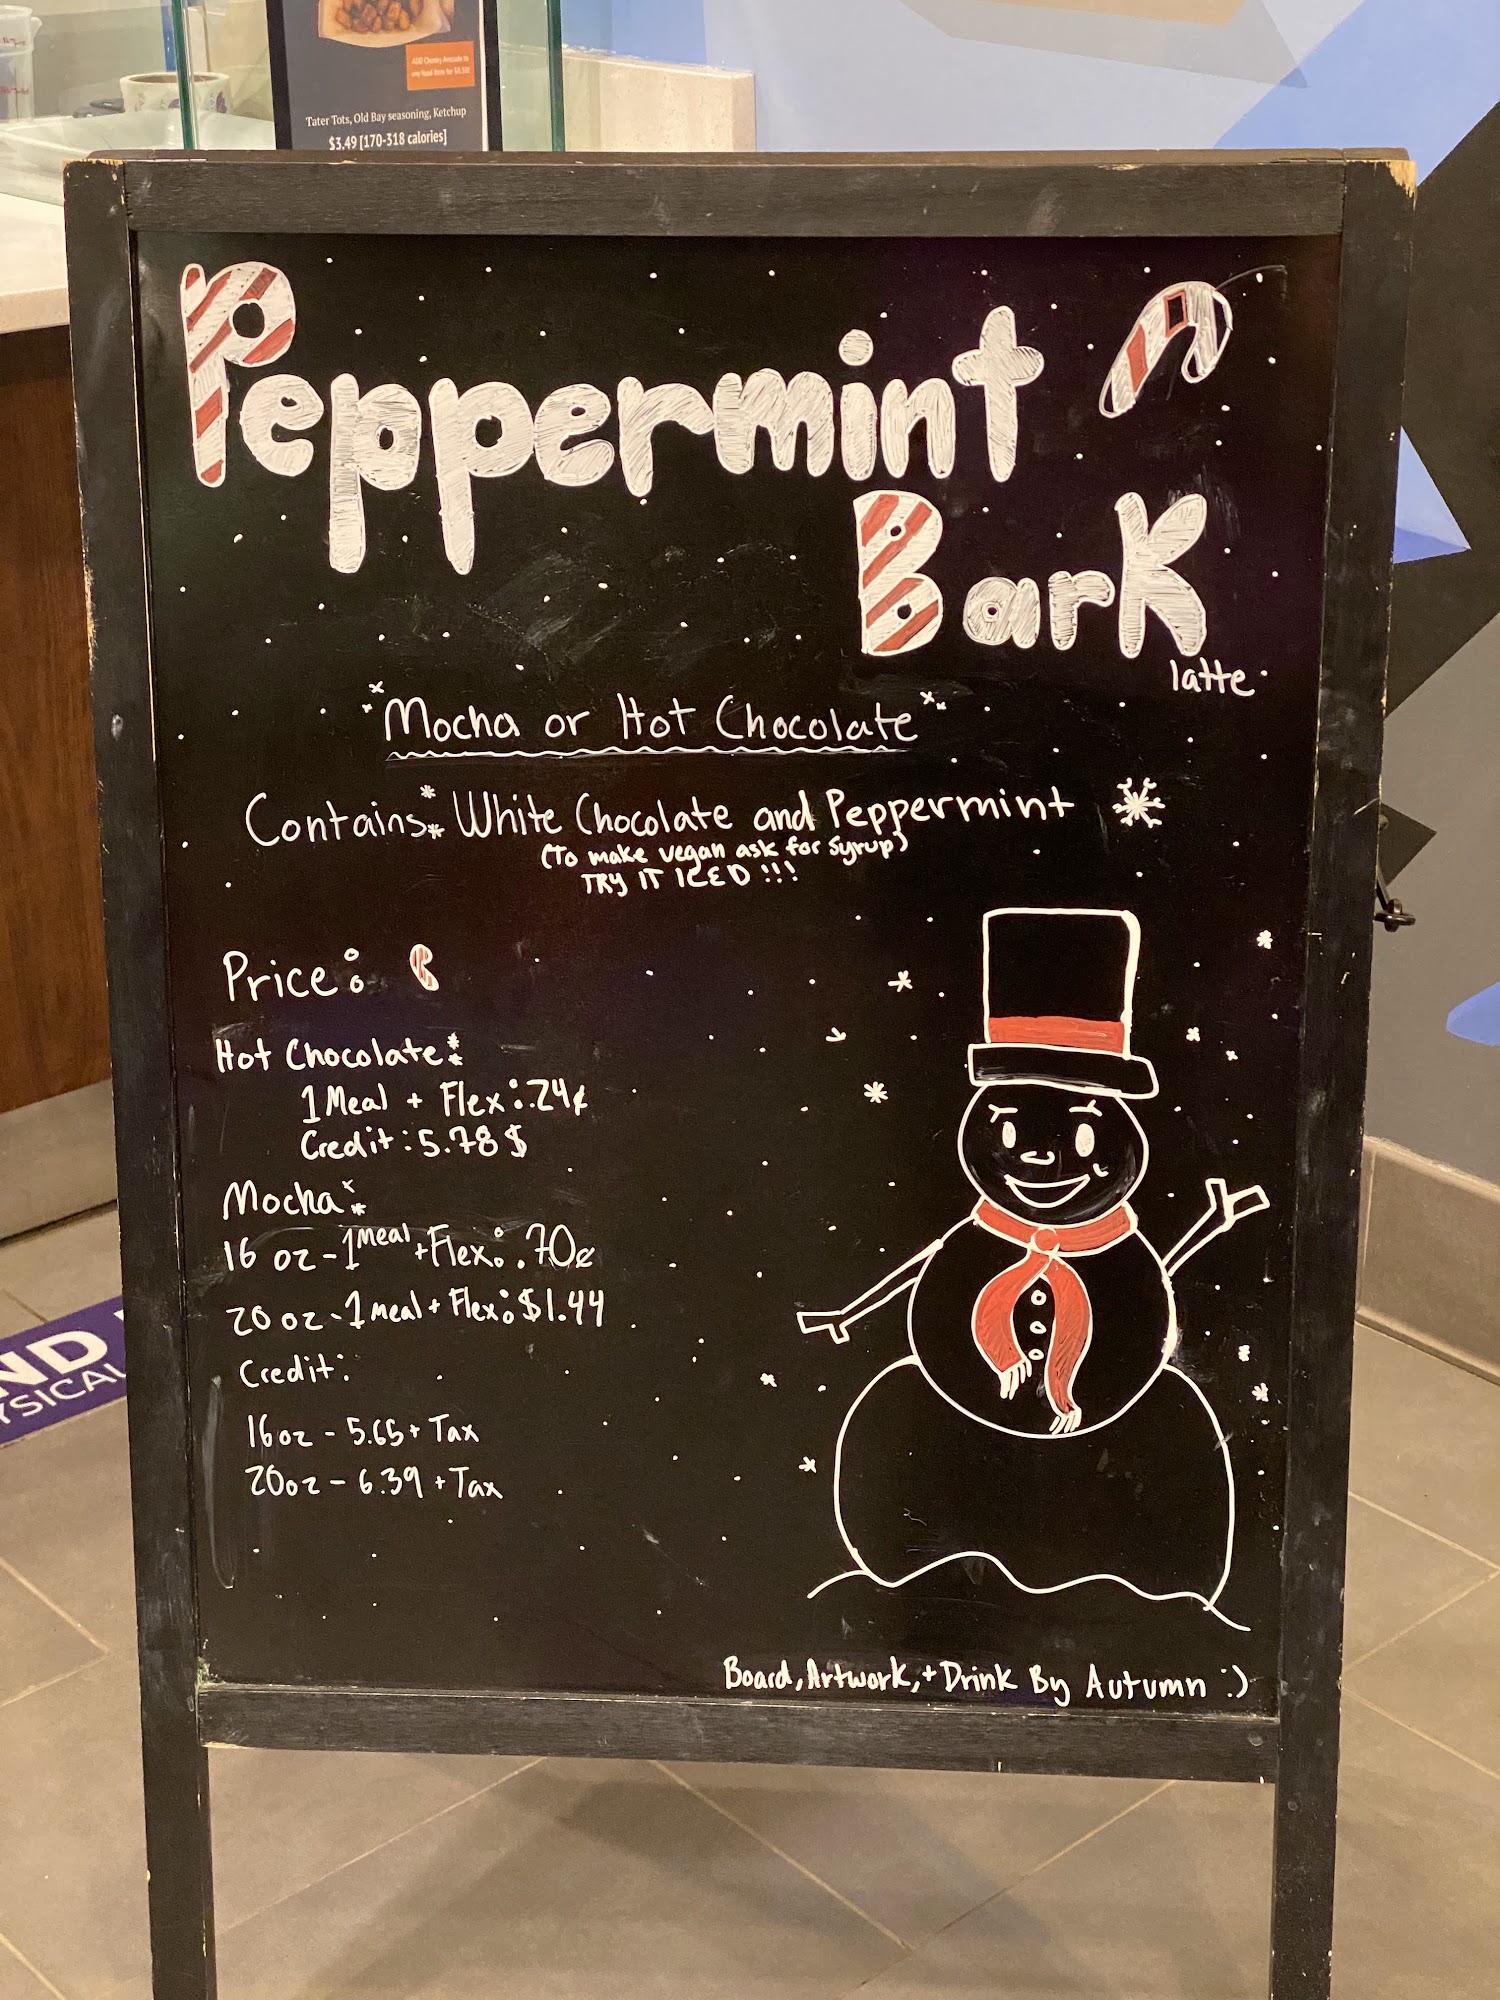 ADD Chunky Avocado to
any food item for $0.50!
Tater Tots, Old Bay seasoning, Ketchup
$3.49 [170-318 calories]
Peppermint
Bark
latte
Mocha or Hot Chocolate
Contains: White Chocolate and Peppermint
(To make vegan ask for syrup)
TRY IT ICED !!!
Price:
Hot Chocolate:
1 Meal + Flex: .24¢
Credit: 5.78$
Mocha:
16 oz - 1 meal + Flex: .70¢
20 oz - 1 meal + Flex: $1.44
Credit:
16oz - 5.65 + Tax
20oz - 6.39 + Tax
Board, Artwork, + Drink By Autumn :)
ND
YSICAL